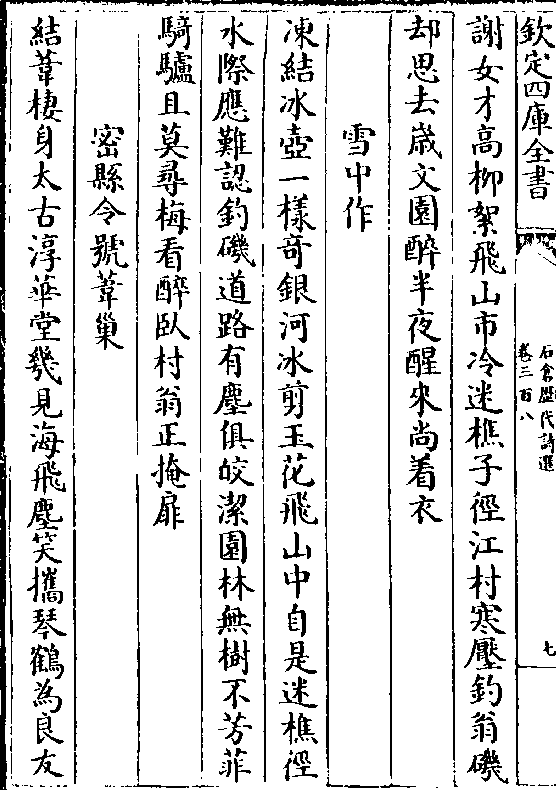 欽定四庫全書
石倉歷代詩選
卷三百八
七
謝女才高柳絮飛山市冷迷樵子徑江村寒壓釣翁磯
却思去歲文園醉半夜醒來尚着衣
雪中作
凍結冰壺一樣竒銀河冰剪玉花飛山中自是迷樵徑
水際應難認釣磯道路有塵俱皎潔園林無樹不芳菲
騎驢且莫尋梅看醉臥村翁正掩扉
密縣令號葦巢
結葦棲身太古淳華堂幾見海飛塵笑攜琴鶴為良友